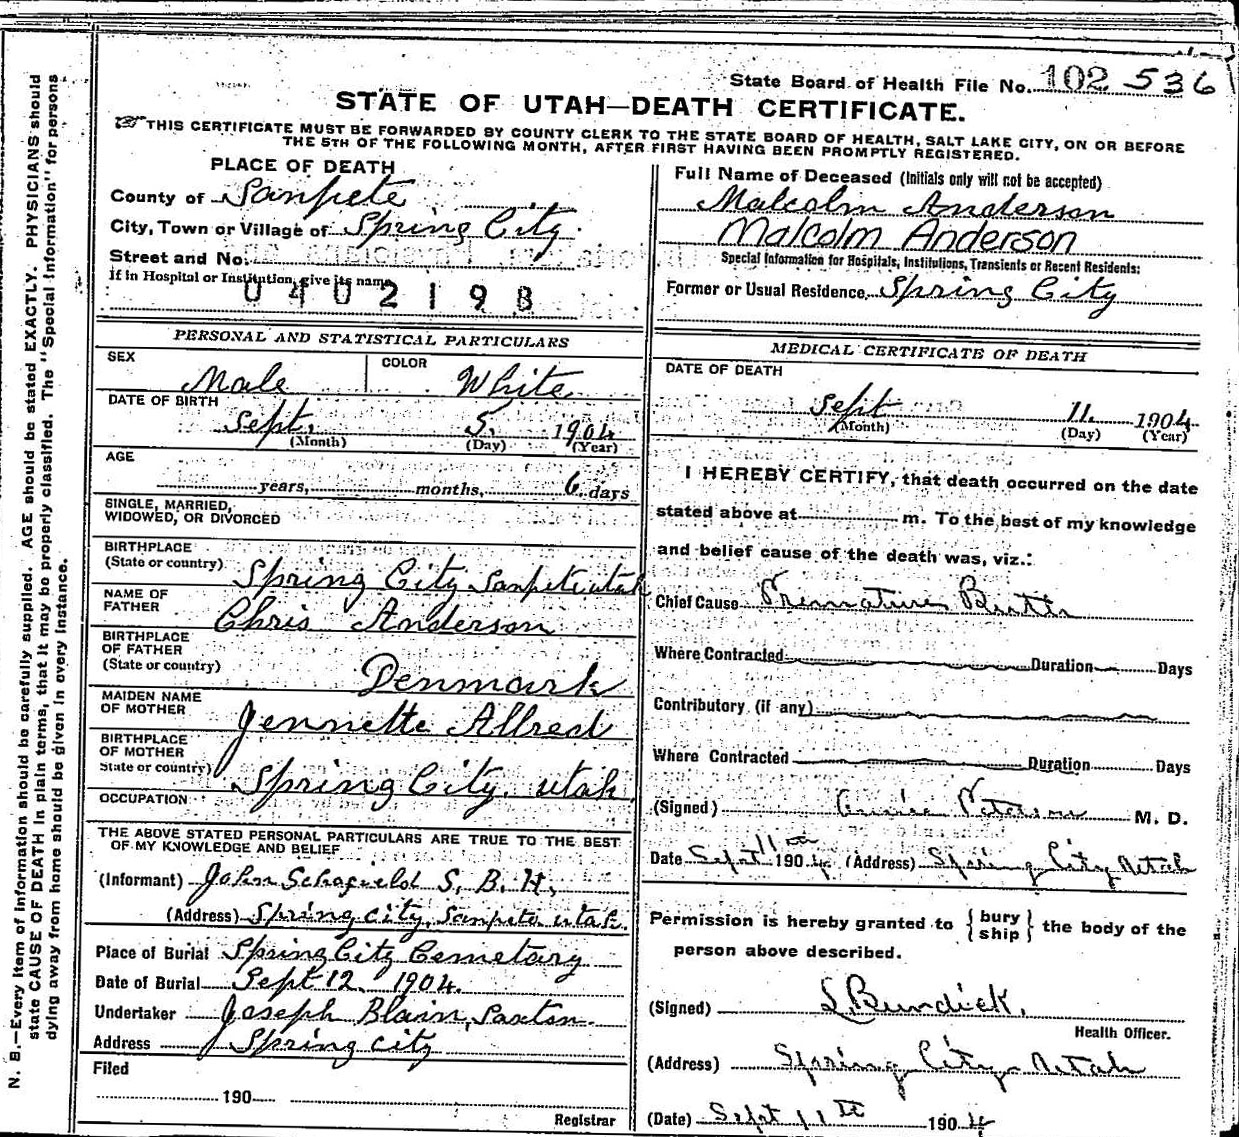 State Board of Health File No. 102 536
STATE OF UTAH—DEATH CERTIFICATE.
THIS CERTIFICATE MUST BE FORWARDED BY COUNTY CLERK TO THE STATE BOARD OF HEALTH, SALT LAKE CITY, ON OR BEFORE
THE 5TH OF THE FOLLOWING MONTH, AFTER FIRST HAVING BEEN PROMPTLY REGISTERED.
PLACE OF DEATH
County of Sanpete
City, Town or Village of Spring City
Street and No.
If in Hospital or Institution, give its name
0402198
Full Name of Deceased (Initials only will not be accepted)
Malcolm Anderson
Malcolm Anderson
Special Information for Hospitals, Institutions, Transients or Recent Residents:
Former or Usual Residence Spring City
PERSONAL AND STATISTICAL PARTICULARS
SEX Male
COLOR White
DATE OF BIRTH
Sept. 5. 1904
(Month) (Day) (Year)
AGE
years, months, 6 days
SINGLE, MARRIED,
WIDOWED, OR DIVORCED
BIRTHPLACE
(State or country) Spring City Sanpete utah
NAME OF
FATHER Chris Anderson
BIRTHPLACE
OF FATHER
(State or country) Denmark
MAIDEN NAME
OF MOTHER Jennette Allred
BIRTHPLACE
OF MOTHER
State or country) Spring City. utah
OCCUPATION
THE ABOVE STATED PERSONAL PARTICULARS ARE TRUE TO THE BEST
OF MY KNOWLEDGE AND BELIEF
(Informant) John Schofield S. B. H.
(Address) Spring city, Sanpete utah.
Place of Burial Spring City Cemetary
Date of Burial Sept 12 1904.
Undertaker Joseph Blain, Saxton
Address Spring city
Filed
190
Registrar
MEDICAL CERTIFICATE OF DEATH
DATE OF DEATH
Sept 11. 1904
(Month) (Day) (Year)
I HEREBY CERTIFY, that death occurred on the date
stated above at m. To the best of my knowledge
and belief cause of the death was, viz.:
Chief Cause Premature Birth
Where Contracted Duration Days
Contributory (if any)
Where Contracted Duration Days
(Signed) Peterson M. D.
Date Sept 11th 1904 (Address) Spring City Utah
Permission is hereby granted to { bury ship } the body of the
person above described.
(Signed) L. Burdick.
Health Officer.
(Address) Spring City Utah
(Date) Sept 11th 1904
N. B.—Every item of information should be carefully supplied. AGE should be stated EXACTLY. PHYSICIANS should
state CAUSE OF DEATH in plain terms, that it may be properly classified. The "Special Information" for persons
dying away from home should be given in every instance.